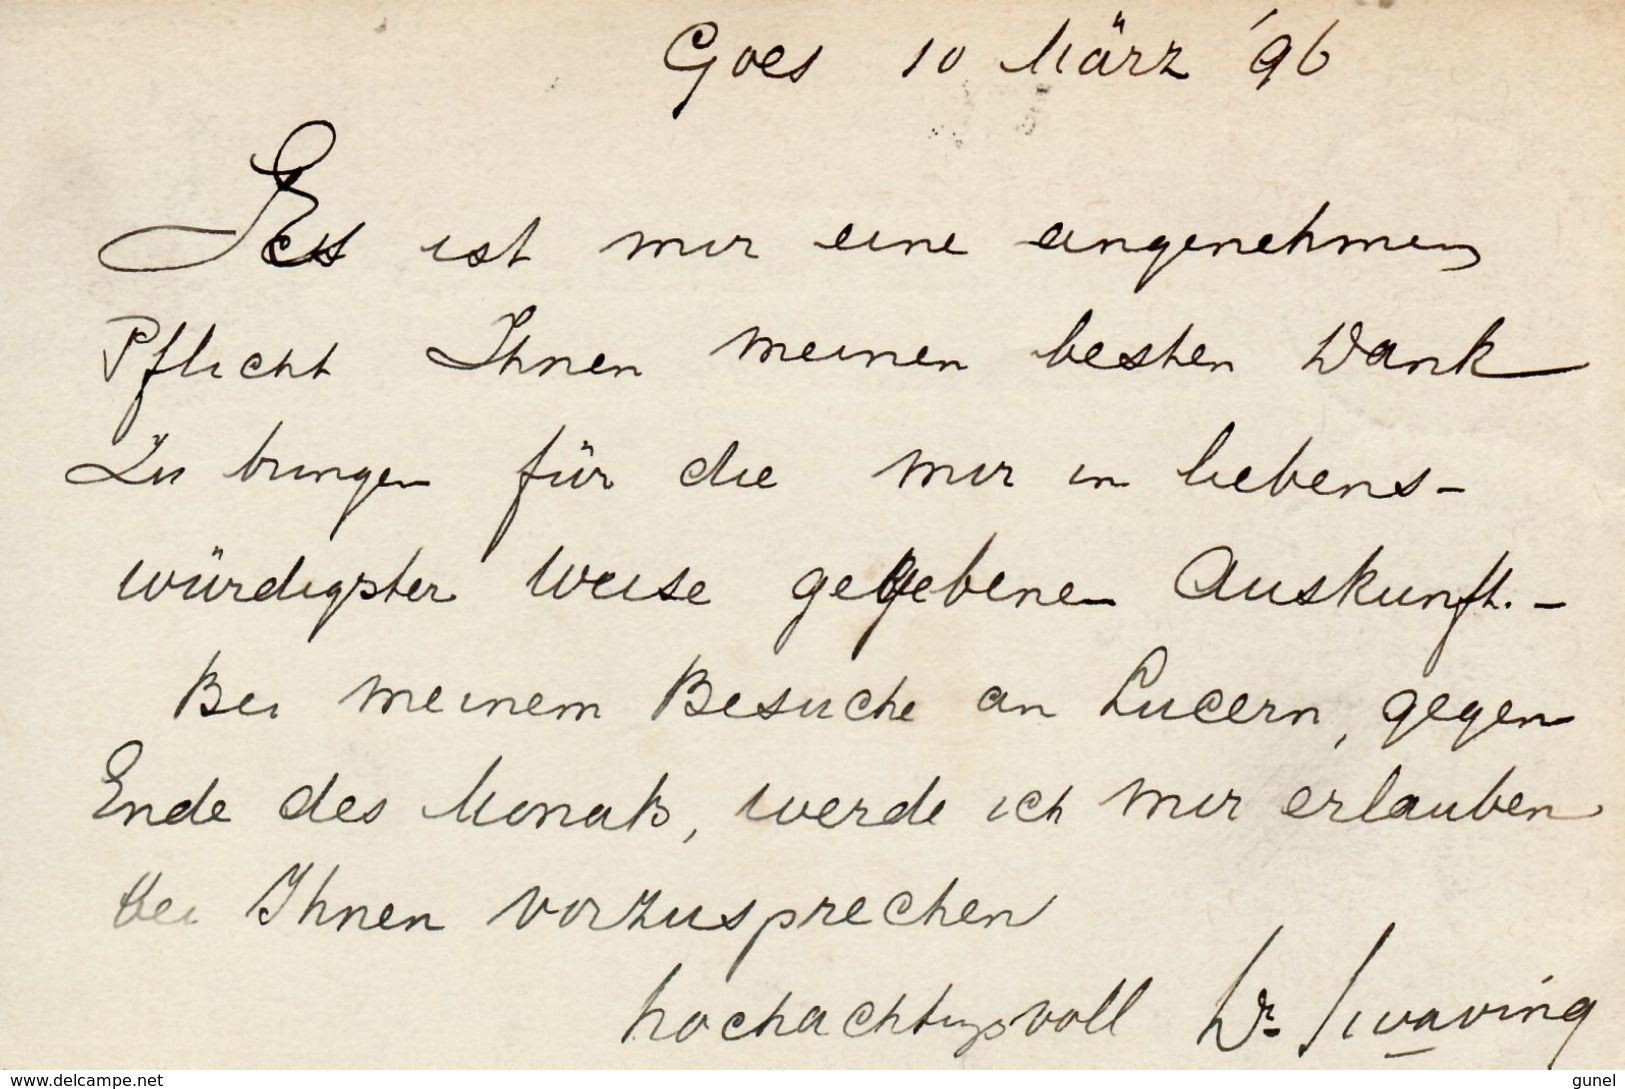 Goes 10 März '96
Es ist mir eine angenehmen
Pflicht Ihnen meinen besten Dank
zu bringen für die mir in liebens-
würdigster Weise gegebenen Auskunft. -
Bei meinem Besuche an Lucern, gegen
Ende des Monats, werde ich mir erlauben
bei Ihnen vorzusprechen
hochachtungsvoll Dr. Swaving
www.delcampe.net gunel